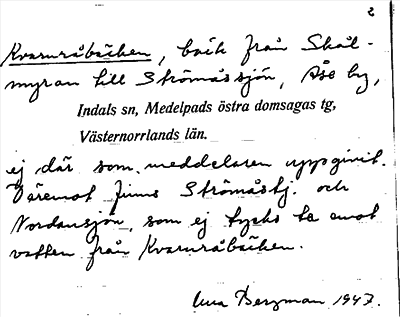 2
Kvarnråbäcken, bäck från Skål-
myran till Strömåssjön, Åse by,
Indals sn, Medelpads östra domsagas tg,
Västernorrlands län.
ej där som meddelaren uppgivit.
Däremot finns Strömåstj. och
Nordansjön, som ej tycks ta emot
vatten från Kvarnråbäcken.
Una Bergman 1947.